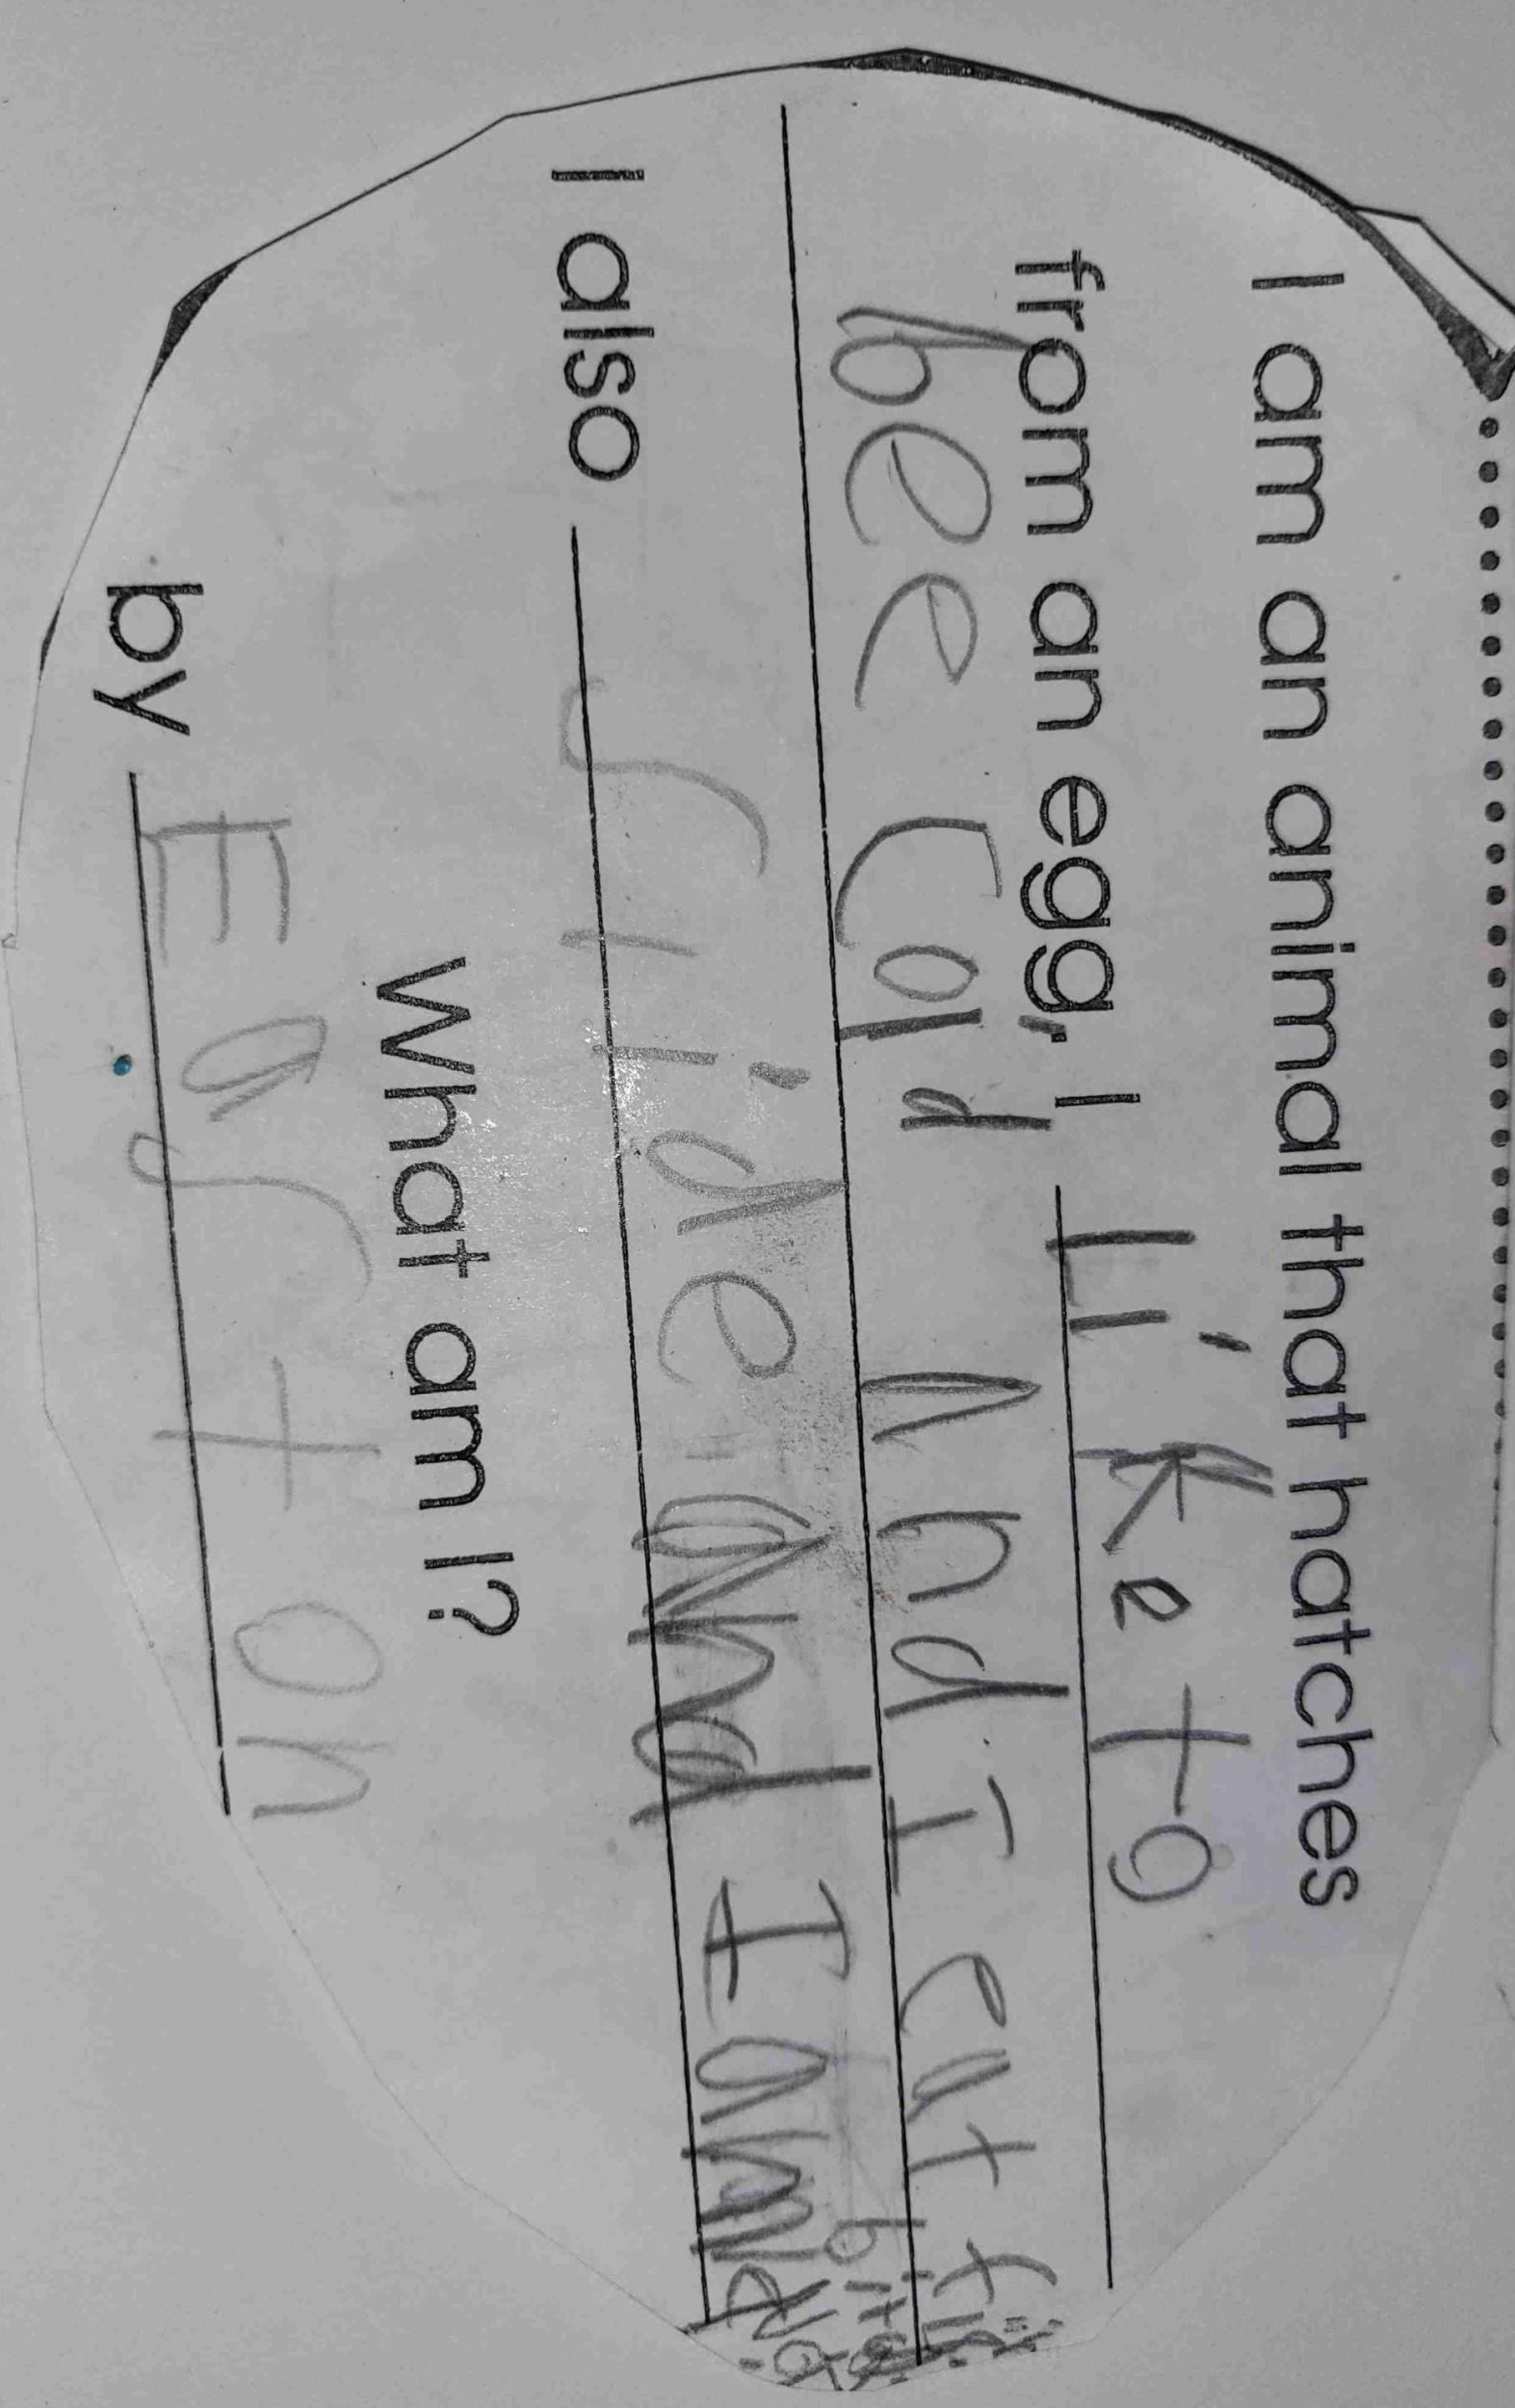 I am an animal that hatches
from an egg, I Like to
bee Cold And I eat f
I also Slide And I am
What am I?
by Easton